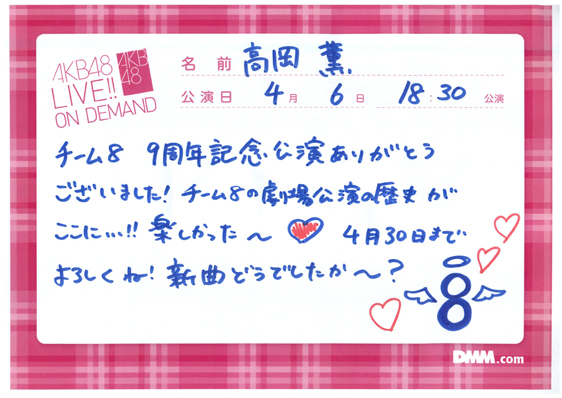 AKB48
LIVE!!
ON DEMAND
AKB
48
名前 高岡 薫
公演日 4月 6日 18:30 公演
チーム8 9周年記念公演ありがとう
ございました! チーム8の劇場公演の歴史が
ここに…!! 楽しかった〜 4月30日まで
よろしくね! 新曲どうでしたか〜?
8
DMM.com